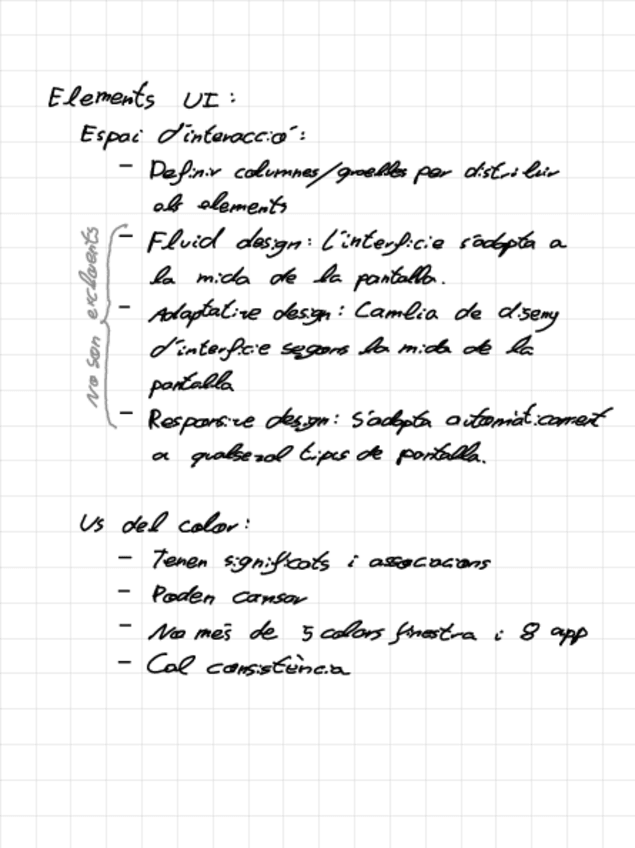 Elements UI:
Espai d'interacció:
- Definir columnes/graelles per distribuir
els elements
No son excluents
- Fluid design: L'interficie s'adapta a
la mida de la pantalla.
- Adaptative design: Cambia de diseny
d'interficie segons la mida de la
pantalla
- Responsive design: S'adapta automàticament
a qualsevol tipus de pantalla.
Us del color:
- Tenen significats i associacions
- Poden cansar
- No més de 5 colors finestra i 8 app
- Cal consistència